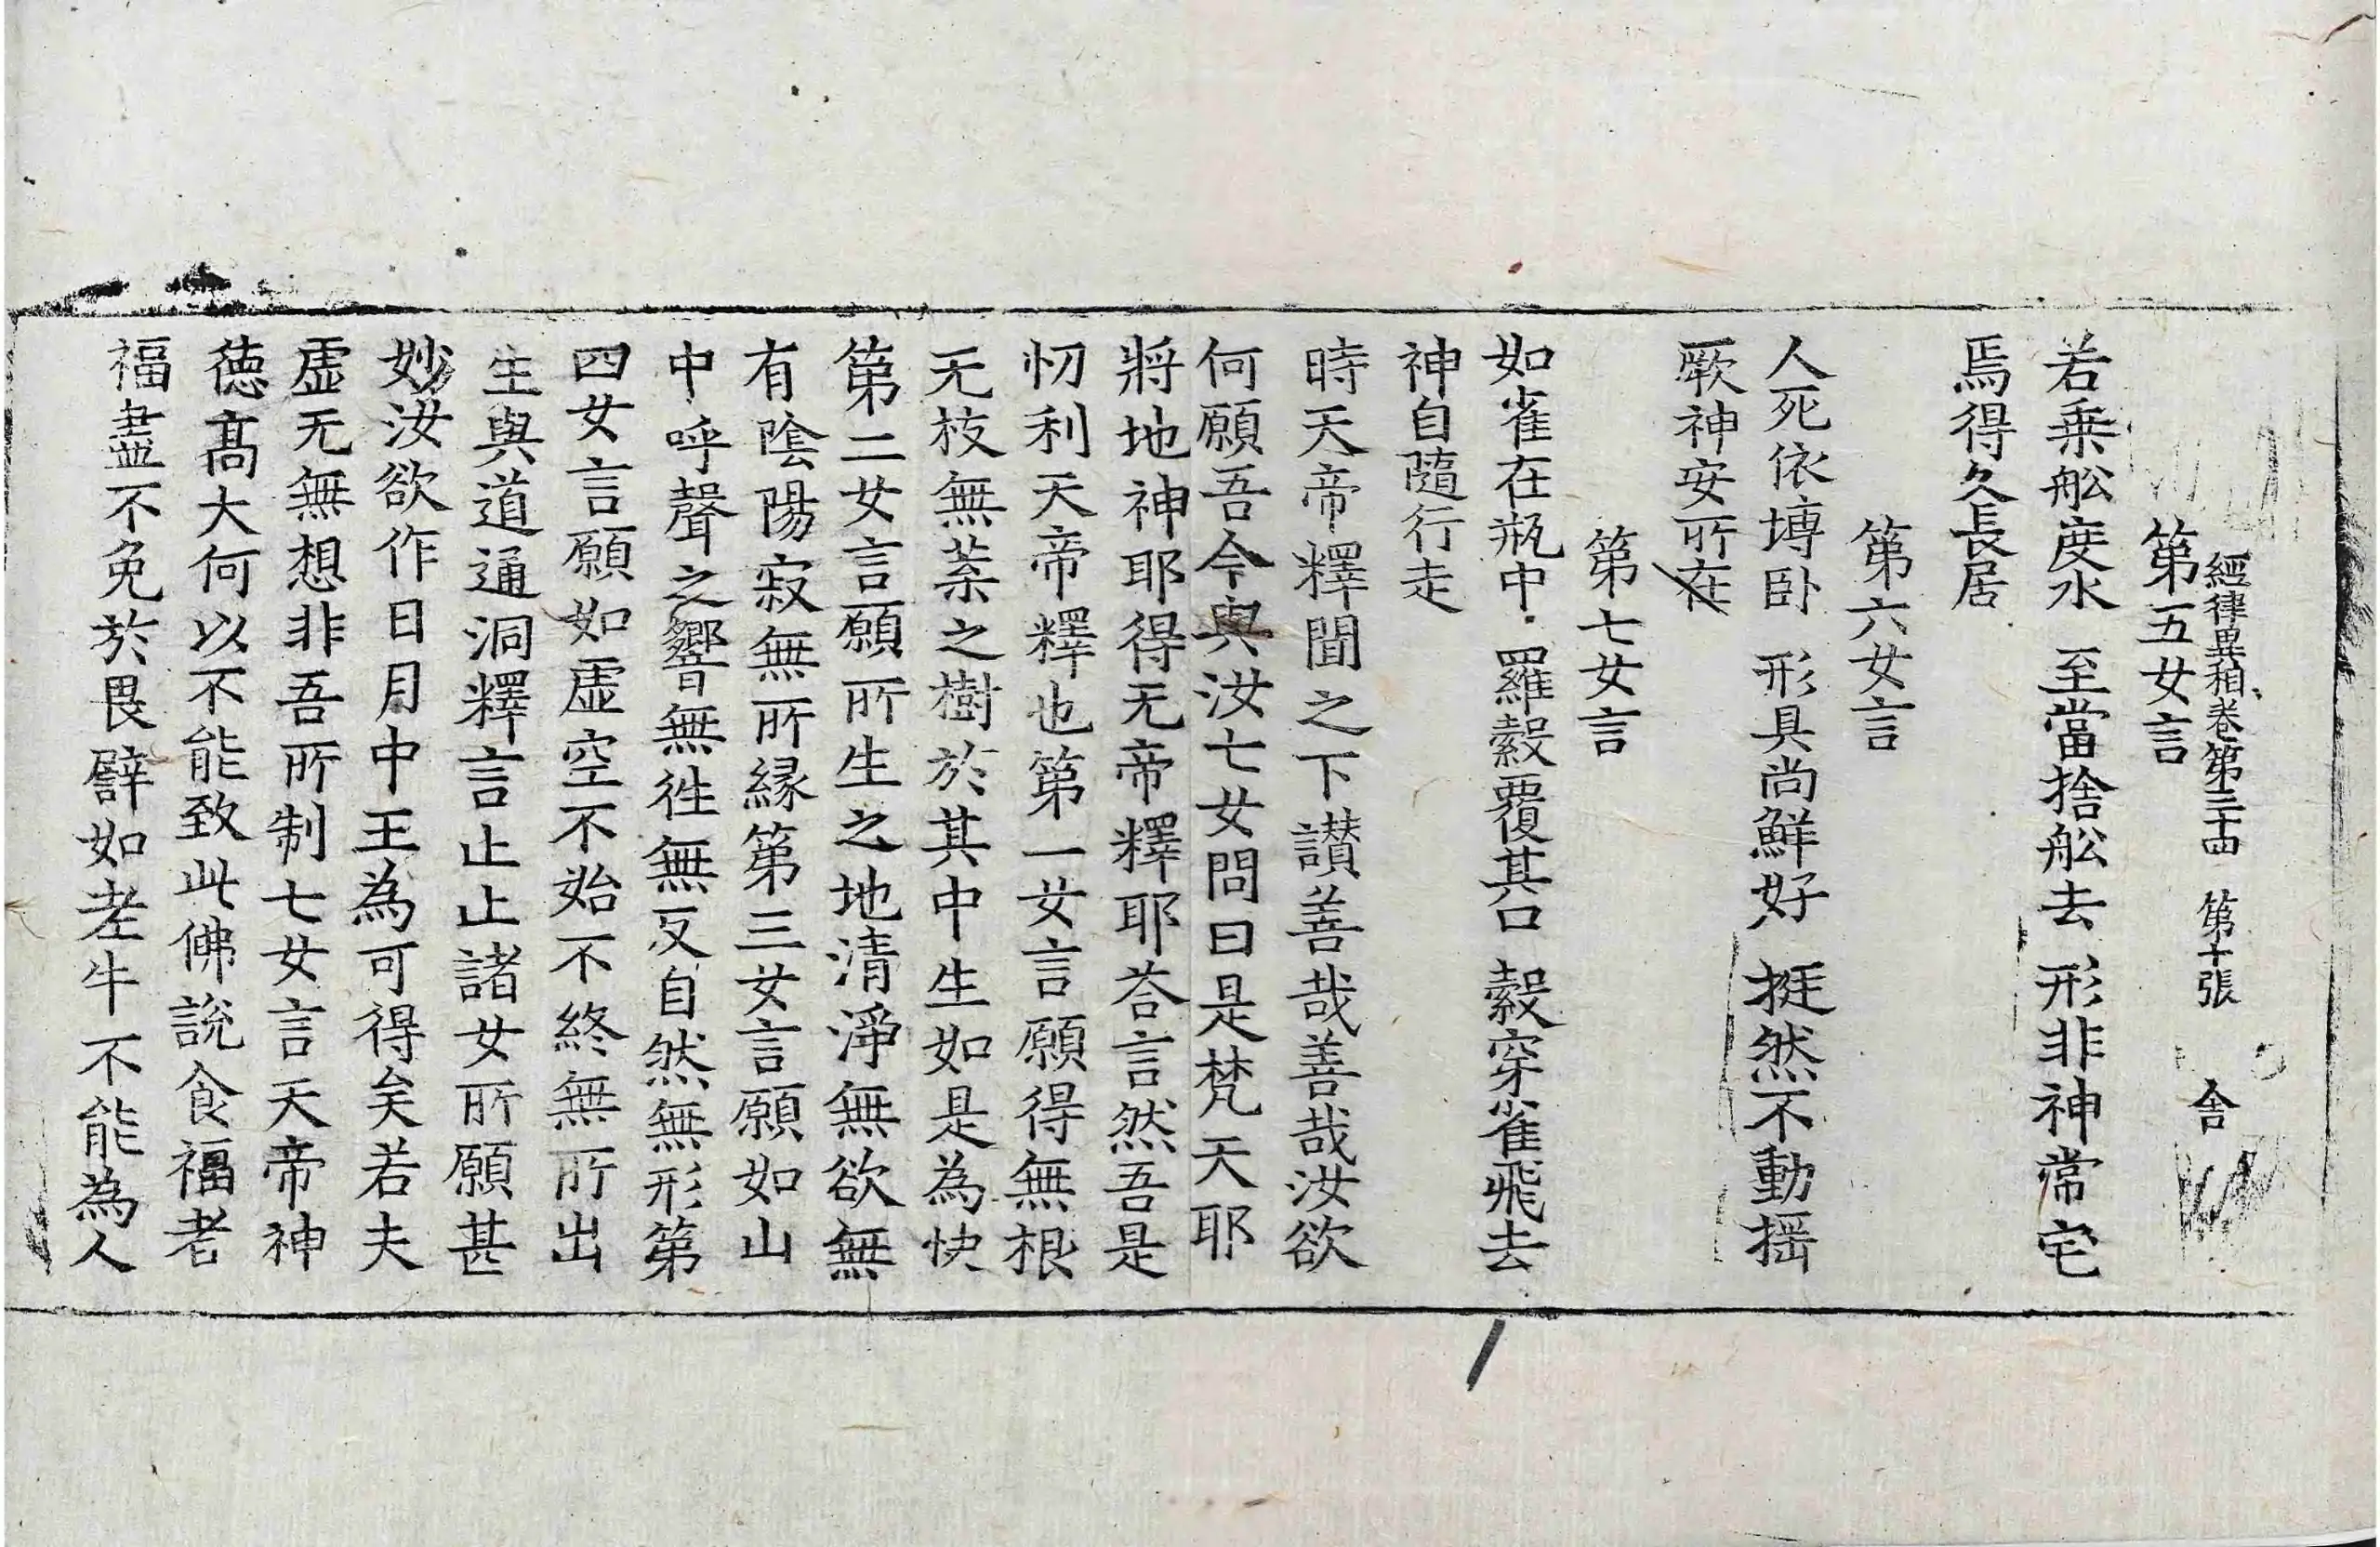 經律異相卷第三十四 第十張 舍
第五女言
若乗舩度水 至當捨舩去 形非神常宅
焉得久長居
第六女言
人死依塼卧 形具尚鮮好 挺然不動揺
厥神安所在
第七女言
如雀在瓶中 羅縠覆其口 縠穿雀飛去
神自隨行走
時天帝釋聞之下讃善哉善哉汝欲
何願吾今與汝七女問曰是梵天耶
將地神耶得无帝釋耶荅言然吾是
忉利天帝釋也第一女言願得無根
无枝無葉之樹於其中生如是為快
第二女言願所生之地清淨無欲無
有陰陽寂無所縁第三女言願如山
中呼聲之響無徃無反自然無形第
四女言願如虛空不始不終無所出
生與道通洞釋言止止諸女所願甚
妙汝欲作日月中王為可得矣若夫
虛无無想非吾所制七女言天帝神
德髙大何以不能致此佛說食福老
福盡不免於畏譬如老牛不能為人